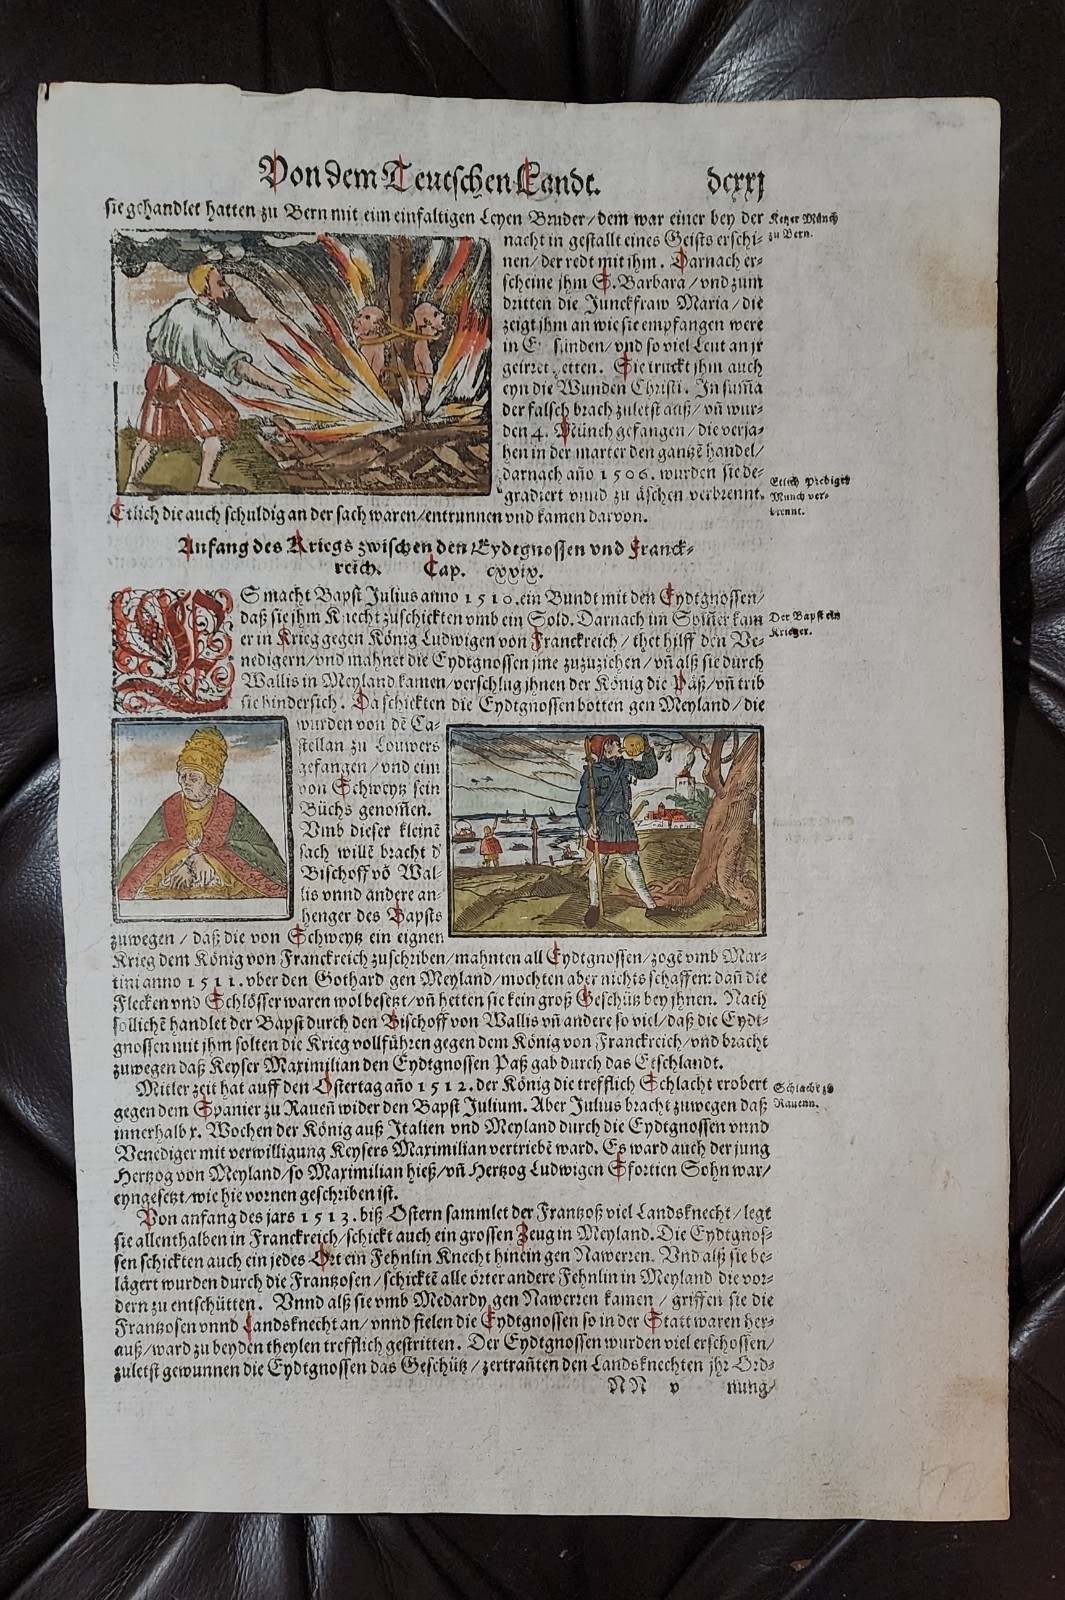 Von dem Teutschen Landt. dcxxj
sie gehandlet hatten zu Bern mit eim einfaltigen Leyen Bruder / dem war einer bey der
Ketzer Münch
zu Bern.
nacht in gestallt eines Geists erschi-
nen / der redt mit jhm. Darnach er-
scheine jhm S. Barbara / vnd zum
dritten die Junckfraw Maria / die
zeigt jhm an wie sie empfangen were
in sünden / vnd so viel Leut an jr
geirret hetten. Sie truckt jhm auch
eyn die Wunden Christi. In sum̃a
der falsch brach zuletst auß / vñ wur-
den 4. Münch gefangen / die verja-
hen in der marter den gantzẽ handel /
darnach año 1506. wurden sie de-
gradiert vnnd zu äschen verbrennt.
Etlich Prediger
Münch ver-
brennt.
Etlich die auch schuldig an der sach waren / entrunnen vnd kamen darvon.
Anfang des Kriegs zwischen den Eydtgnossen vnd Franck-
reich. Cap. cxxix.
ES macht Bapst Julius anno 1510. ein Bundt mit den Eydtgnossen /
daß sie jhm Knecht zuschickten vmb ein Sold. Darnach im Som̃er kam
Der Bapst ein
Krieger.
er in Krieg gegen König Ludwigen von Franckreich / thet hilff den Ve-
nedigern / vnd mahnet die Eydtgnossen jme zuzuziehen / vñ alß sie durch
Wallis in Meyland kamen / verschlug jhnen der König die Päß / vñ trib
sie hindersich. Da schickten die Eydtgnossen botten gen Meyland / die
wurden von dẽ Ca-
stellan zu Louwers
gefangen / vnd eim
von Schweytz sein
Büchs genom̃en.
Vmb dieser kleinẽ
sach willẽ bracht d'
Bischoff võ Wal-
lis vnnd andere an-
henger des Bapsts
zuwegen / daß die von Schweytz ein eignen
Krieg dem König von Franckreich zuschriben / mahnten all Eydtgnossen / zogẽ vmb Mar-
tini anno 1511. vber den Gothard gen Meyland / mochten aber nichts schaffen: dañ die
Flecken vnd Schlösser waren wol besetzt / vñ hetten sie kein groß Geschütz bey jhnen. Nach
sollichẽ handlet der Bapst durch den Bischoff von Wallis vñ andere so viel / daß die Eydt-
gnossen mit jhm solten die Krieg vollführen gegen dem König von Franckreich / vnd bracht
zuwegen daß Keyser Maximilian den Eydtgnossen Paß gab durch das Etschlandt.
Mitler zeit hat auff den Ostertag año 1512. der König die trefflich Schlacht erobert
Schlacht zu
Rauenn.
gegen dem Spanier zu Raueñ wider den Bapst Julium. Aber Julius bracht zuwegen daß
innerhalb x. Wochen der König auß Italien vnd Meyland durch die Eydtgnossen vnnd
Venediger mit verwilligung Keysers Maximilian vertriebẽ ward. Es ward auch der jung
Hertzog von Meyland / so Maximilian hieß / vñ Hertzog Ludwigen Sfortien Sohn war /
eyngesetzt / wie hie vornen geschriben ist.
Von anfang des jars 1513. biß Ostern sammlet der Frantzoß viel Landsknecht / legt
sie allenthalben in Franckreich / schickt auch ein grossen Zeug in Meyland. Die Eydtgnos-
sen schickten auch ein jedes Ort ein Fehnlin Knecht hinein gen Nawerren. Vnd alß sie be-
lägert wurden durch die Frantzosen / schicktẽ alle örter andere Fehnlin in Meyland die vor-
dern zu entschütten. Vnnd alß sie vmb Medardy gen Nawerren kamen / griffen sie die
Frantzosen vnnd Landsknecht an / vnnd fielen die Eydtgnossen so in der Statt waren her-
auß / ward zu beyden theylen trefflich gestritten. Der Eydtgnossen wurden viel erschossen /
zuletst gewunnen die Eydtgnossen das Geschütz / zertrañten den Landsknechten jhr Ord-
NN v nung /